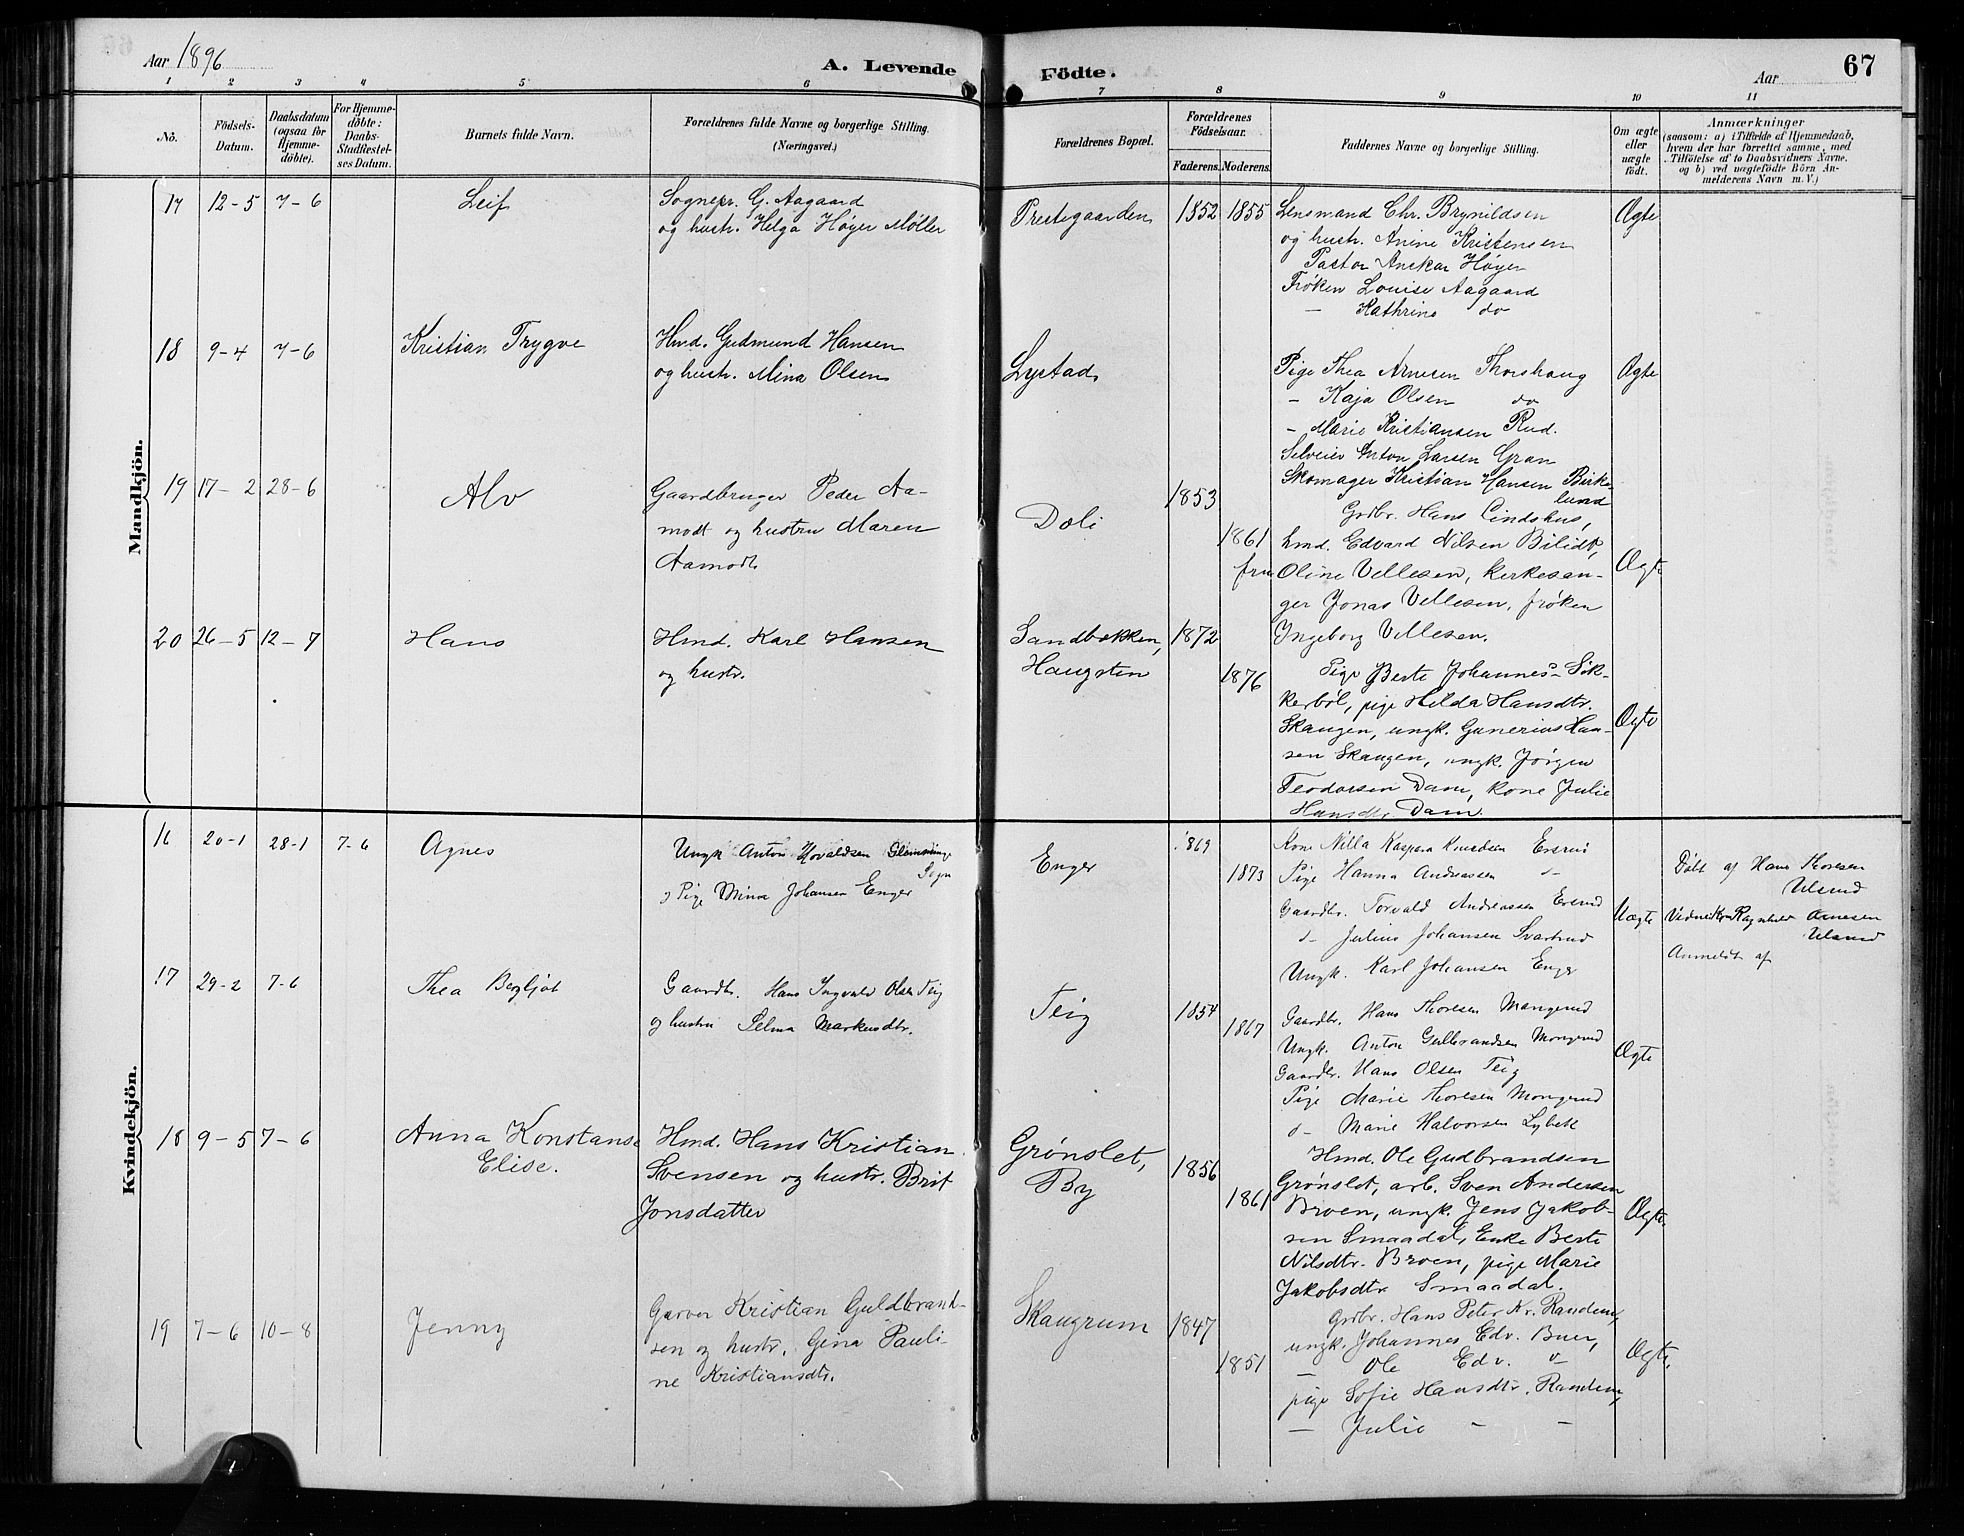 Aar 1896
A. Levende
Födte.
Aar
67
1 2 3 4 5 6 7 8 9 10 11
No.
Födsels-
Datum.
Daabsdatum
(ogsaa for
Hjemme-
döbte).
For Hjemme-
döbte:
Daabs-
Stadfæstel-
ses Datum.
Barnets fulde Navn.
Forældrenes fulde Navne og borgerlige Stilling.
(Næringsvei.)
Forældrenes Bopæl.
Forældrenes
Födselsaar.
Faderens. Moderens.
Faddernes Navne og borgerlige Stilling.
Om ægte
eller
uægte
födt.
Anmærkninger
(saasom: a) i Tilfælde af Hjemmedaab,
hvem der har forrettet samme, med
Tilföielse af to Daabsvidners Navne.
og b) ved uægtefödte Börn An-
melderens Navn m. V.)
Mandkjön.
17 12-5 7-6 Leif
Sognepr. G. Aagaard
og hustr. Helga Höyer Møller
Prestegaarden 1852 1855
Lensmand Chr. Brynildsen
og hustr. Anine Kristensen
Pastor Anskar Höyer
Frøken Louise Aagaard
— Kathrine do
Ægte
18 9-4 7-6 Kristian Trygve
Hmd. Gudmund Hansen
og hustr. Mina Olsen
Lystad
Pige Thea Arnesen Thorshaug
- Kaja Olsen do
- Marie Kristiansen Rud.
Selveier Anton Larsen Gran
Ægte
19 17-2 28-6 Alv
Gaardbruger Peder Aa-
modt og hustru Maren
Aamodt
Doli 1853
1861
Skomager Kristian Hansen Birke
lund
Grdbr. Hans Lindshus,
hmd. Edvard Nilsen Bilidt,
fru Oline Vellesen, kirkesan-
ger Jonas Vellesen, frøken
Ingeborg Vellesen.
Ægte
20 26-5 12-7 Hans
Hmd. Karl Hansen
og hustr.
Sandbakken,
Haugsten
1872
1876
Pige Berte Johannes- Sik-
kerböl, pige Hilda Hansdtr.
Skaugen, ungk. Gunerius Han-
sen Skaugen, ungk. Jörgen
Teodorsen Dam, kone Julie
Hansdtr. Dam.
Ægte
Kvindekjön.
16 20-1 28-1 7-6 Agnes
Ungk Anton Hovaldsen Glemminge
Sogn
o Pige Mina Johansen Enger
Enger 1869
1873
Kone Nilla Kaspara Knudsen Ersrud
Pige Hanna Andreassen d-
Gaardbr. Torvald Andreassen Ersrud
d- Julius Johansen Svartrud
Ungk. Karl Johansen Enger
Uægte
Döbt af Hans Thoresen
Ulsrud
Vidne Kone Ragnhild Arnesen
Ulsrud
Anmeldt af
17 29-2 7-6 Thea Bergljot
Gaardbr. Hans Ingvald Olsen Teig
og hustru Selma Markusdtr.
Teig 1854
1867
Gaardbr. Hans Thoresen Mongerud
Ungk. Anton Gulbrandsen Mongerud
Gaardbr. Hans Olsen Teig
Pige Marie Thoresen Mongerud
d- Marie Halvorsen Lybek
Ægte
18 9-5 7-6 Anna Konstanse
Elise.
Hmd. Hans Kristian
Svensen og hustr. Brit
Jonsdatter
Grønslet,
By
1856
1861
Hmd. Ole Gudbrandsen
Grønslet, arb. Sven Andersen
Broen, ungk. Jens Jakob-
sen Smaadal, Enke Berte
Nilsdtr. Broen, pige Marie
Jakobsdtr Smaadal.
Ægte
19 7-6 10-8 Jenny
Garver Kristian Guldbrand-
sen og hustr. Gina Pauli-
ne Kristiansdtr.
Skaugrum 1847
1851
Grdbr. Hans Peter Kr. Randem,
ungk. Johannes Edv. Buer,
— Ole Edv. d-
pige Sofie Hansdtr. Randem,
— Julie - -
Ægte.